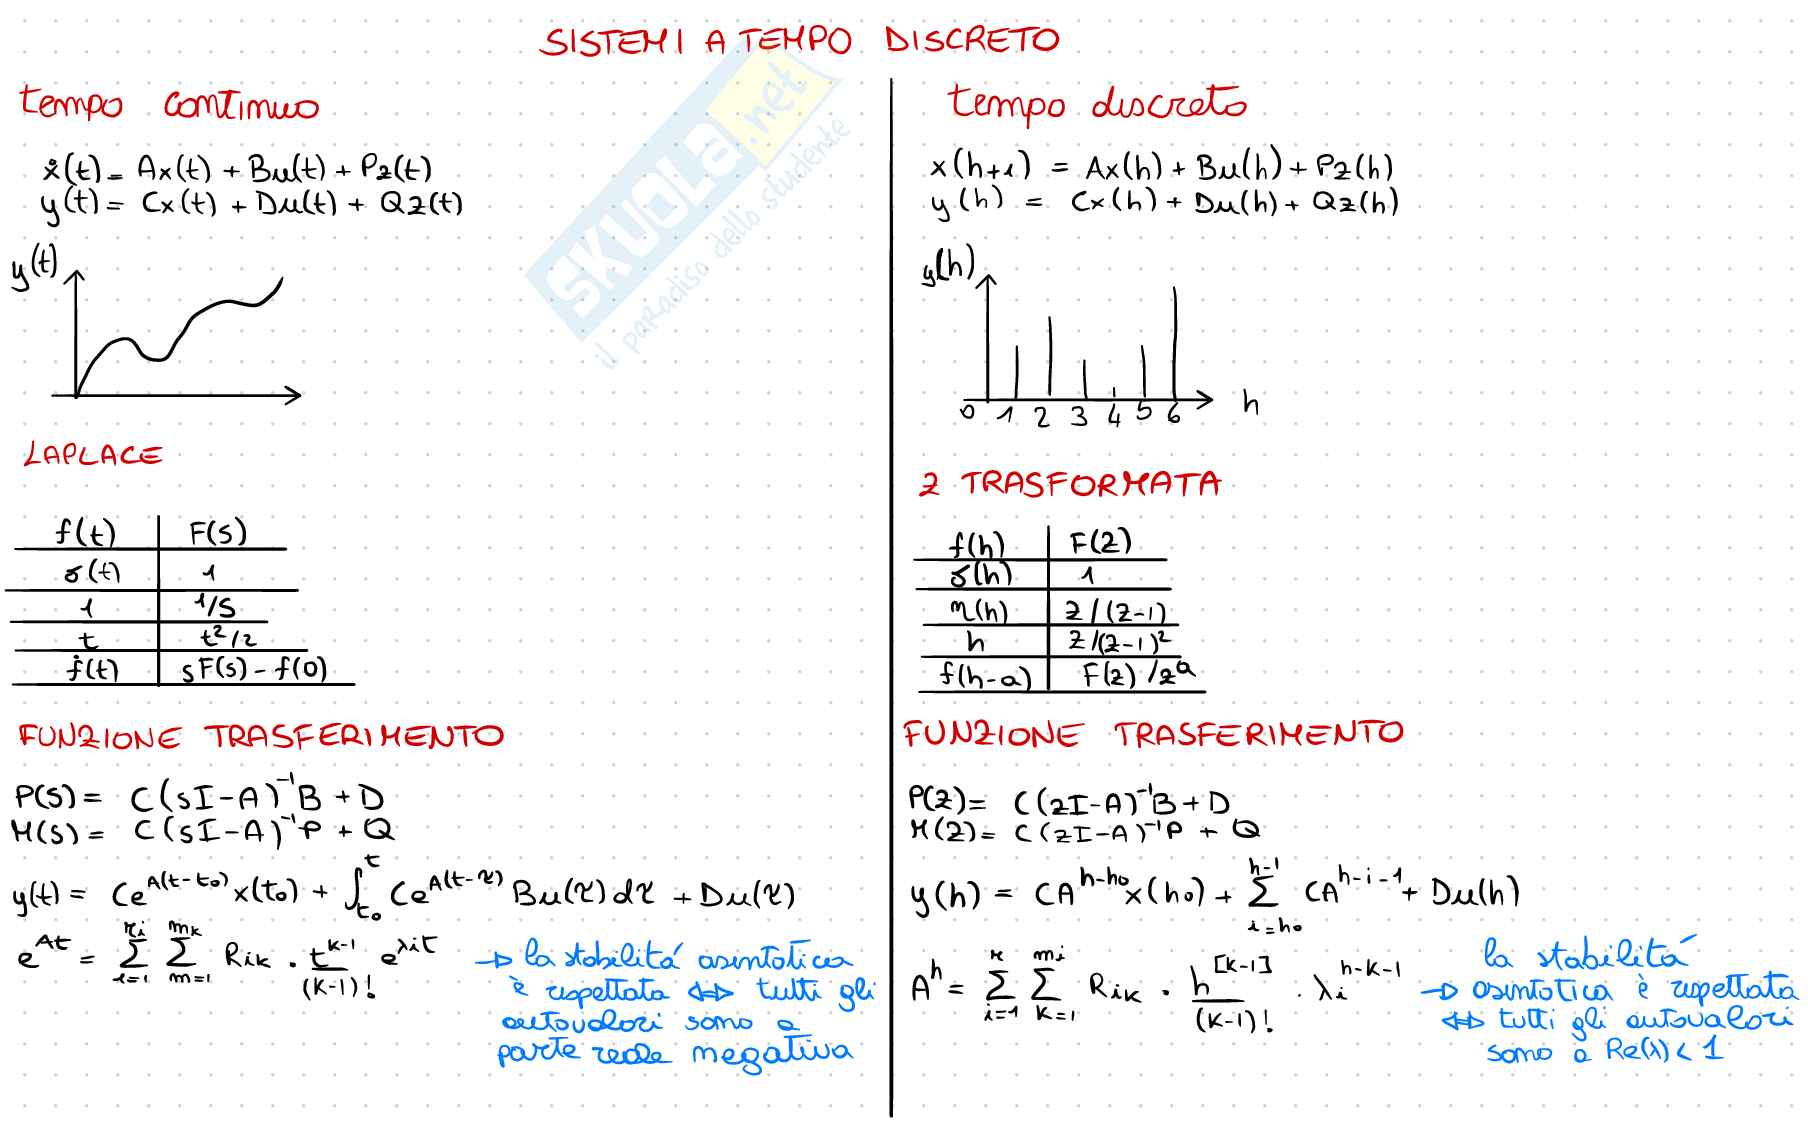 SISTEMI A TEMPO DISCRETO
tempo continuo
ẋ(t) = Ax(t) + Bu(t) + Pz(t)
y(t) = Cx(t) + Du(t) + Qz(t)
y(t)
LAPLACE
f(t) F(s)
δ(t) 1
1 1/s
t t²/2
ḟ(t) sF(s) - f(0)
FUNZIONE TRASFERIMENTO
P(s) = C(sI-A)⁻¹B + D
M(s) = C(sI-A)⁻¹P + Q
y(t) = Ce^{A(t-t₀)}x(t₀) + ∫_{t₀}^{t} Ce^{A(t-τ)} Bu(τ)dτ + Du(τ)
e^{At} = Σ_{i=1}^{ri} Σ_{m=1}^{mk} Rik · t^{k-1}/(k-1)! e^{λit}
→ la stabilitá asintotica
è rispettata ⇔ tutti gli
autovalori sono a
parte reale negativa
tempo discreto
x(h+1) = Ax(h) + Bu(h) + Pz(h)
y(h) = Cx(h) + Du(h) + Qz(h)
y(h)
0 1 2 3 4 5 6 h
Z TRASFORMATA
f(h) F(z)
δ(h) 1
η(h) z/(z-1)
h z/(z-1)²
f(h-a) F(z)/z^a
FUNZIONE TRASFERIMENTO
P(z) = C(zI-A)⁻¹B + D
M(z) = C(zI-A)⁻¹P + Q
y(h) = CA^{h-h₀}x(h₀) + Σ_{i=h₀}^{h-1} CA^{h-i-1} + Du(h)
A^h = Σ_{i=1}^{r} Σ_{k=1}^{mi} Rik · h^{[k-1]}/(k-1)! · λi^{h-k-1}
la stabilitá
→ asintotica è rispettata
⇔ tutti gli autovalori
sono a Re(λ) < 1
SKUOLA.net
il paradiso dello studente